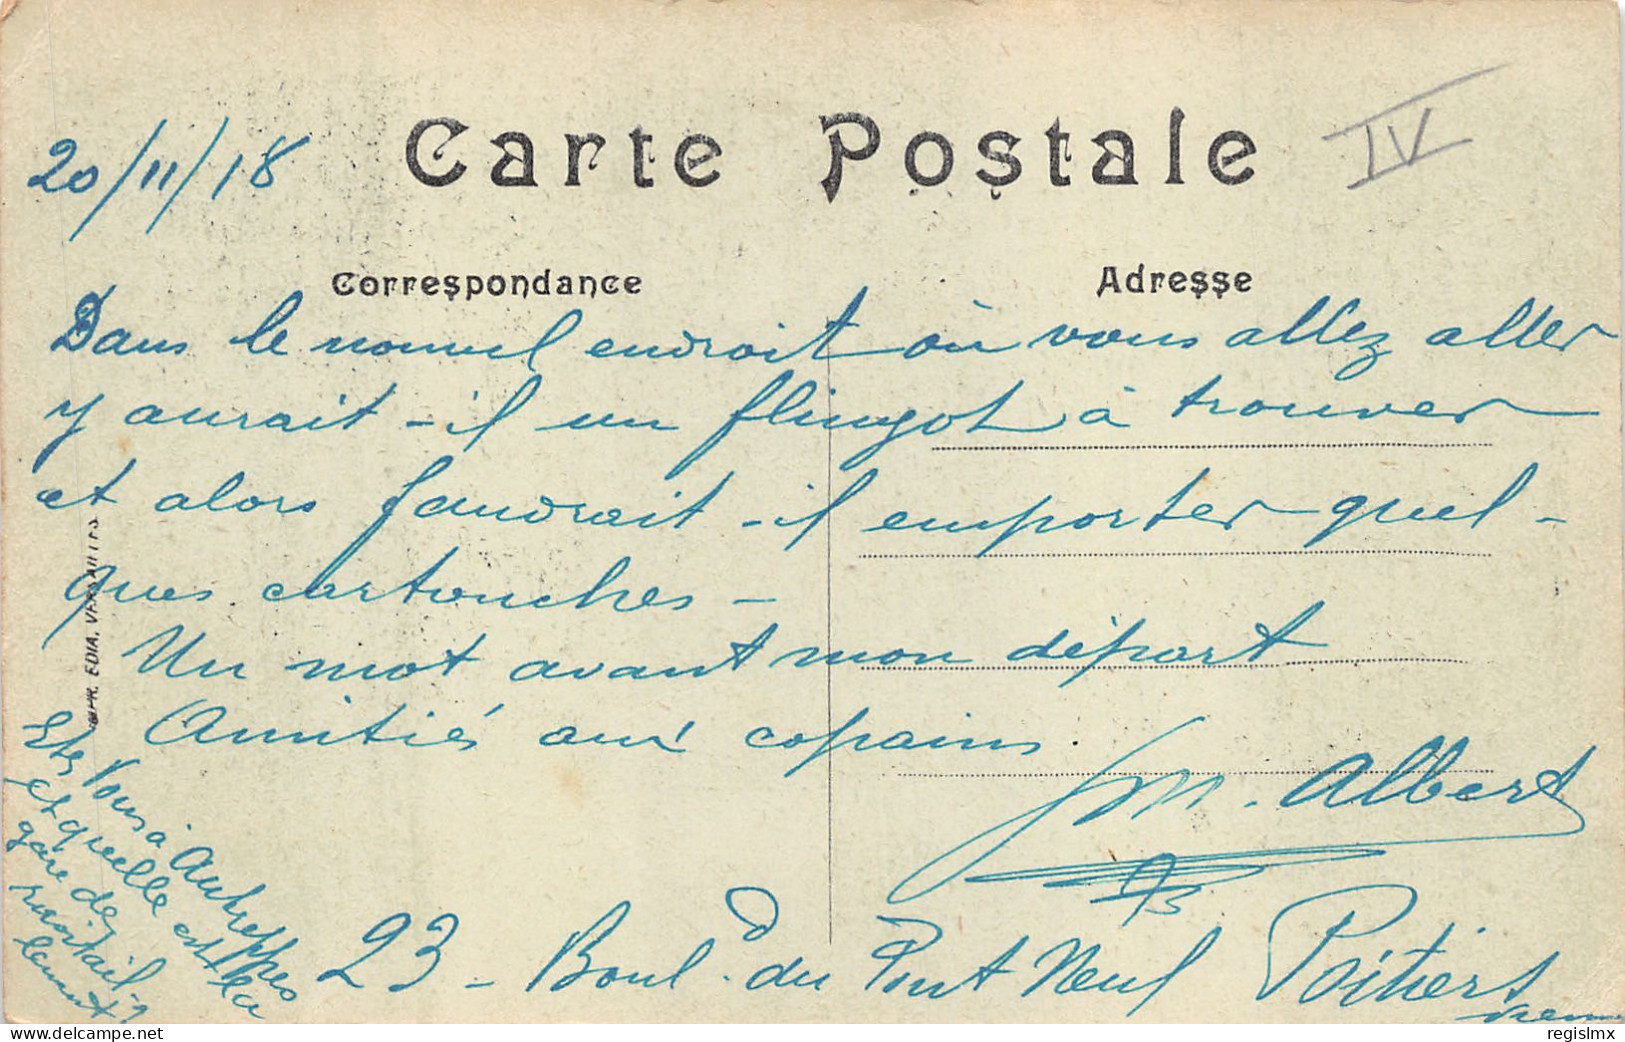 20/11/18
Carte Postale
IV
Correspondance
Adresse
Dans le nouvel endroit où vous allez aller
y aurait-il un flingot à trouver
et alors faudrait-il emporter quel-
ques cartouches -
Un mot avant mon départ
Amitiés aux copains.
M. Albert
23 - Boul.d du Pont Neuf Poitiers
Vienne
Etes Vous à Autreppes
et quelle est la
gare de
ravitail
lement ?
EDIA. VERSAILLES
www.delcampe.net
regislmx